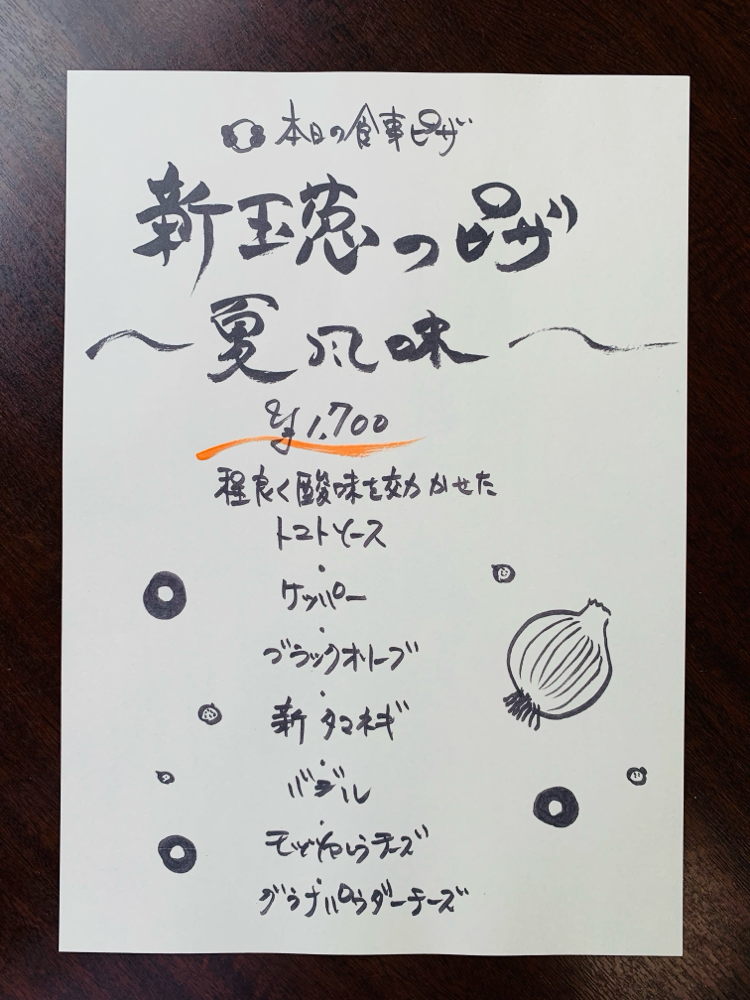 本日の食事ピザ
新玉葱のピザ
〜夏風味〜
¥1,700
程良く酸味を効かせた
トマトソース
・
ケッパー
・
ブラックオリーブ
・
新タマネギ
・
バジル
・
モッツァレラチーズ
・
グラナパウダーチーズ